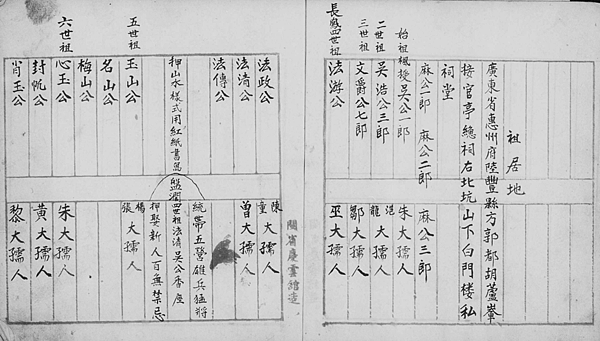 祖居地
廣東省惠州府陸豐縣方郭都胡蘆輋
接官亭總祠右北坑山下白門楼私
祠堂
麻公一郎 麻公二郎 麻公三郎
始祖楓授吳公一郎 朱大孺人
二世祖 吳浩公三郎 龍大孺人
三世祖 文爵公七郎 鄒大孺人
四世祖 法游公 巫大孺人
閩省慶雲館造
法政公 陳童大孺人
法清公 曾大孺人
法傳公
統帶五營雄兵猛將
押山水樣式用紅紙書寫
盤瀾四世祖法清吳公香座
押娶新人百無禁忌
五世祖 玉山公 楊張大孺人
名山公
梅山公
六世祖 心玉公 朱大孺人
封悅公 黃大孺人
肖玉公 黎大孺人